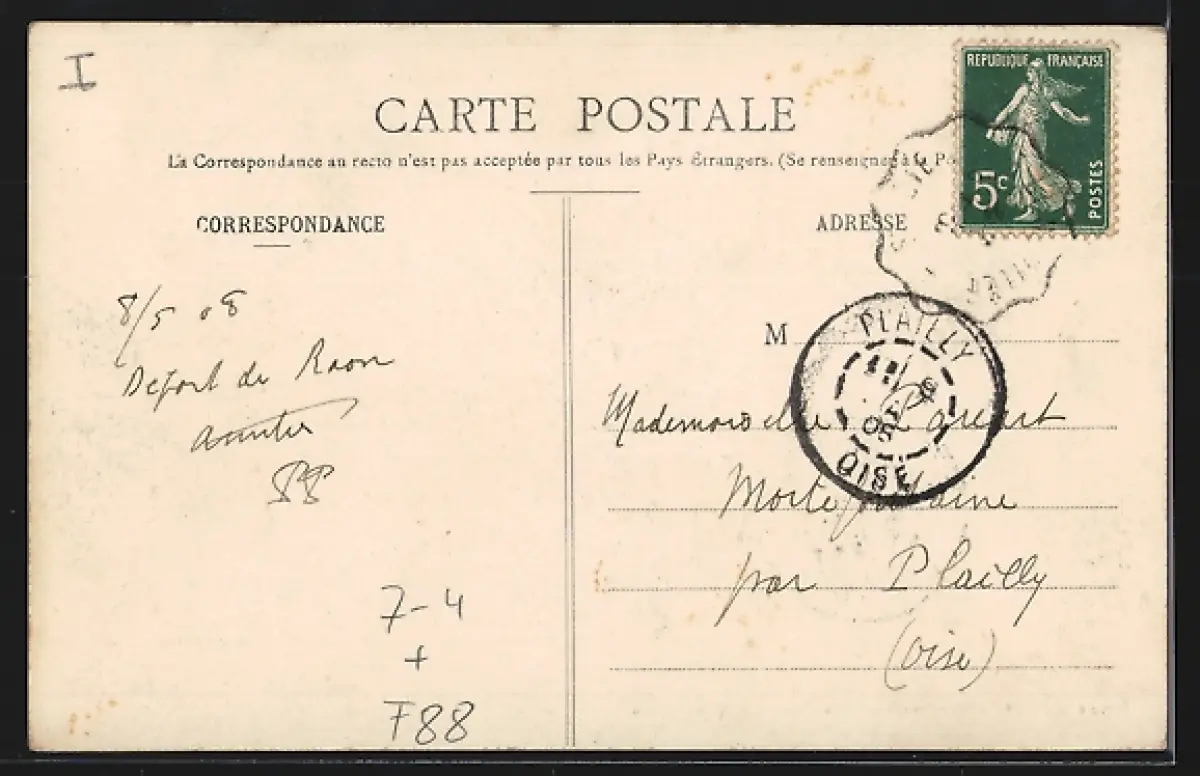 I
CARTE POSTALE
La Correspondance au recto n'est pas acceptée par tous les Pays Étrangers. (Se renseigner à la Po
CORRESPONDANCE
ADRESSE
REPUBLIQUE FRANÇAISE
5c
POSTES
8/5 08
Départ de Raon
7-4
+
F88
M
PLAILLY
OISE
Mademoiselle
Mortefontaine
par Plailly
(Oise)